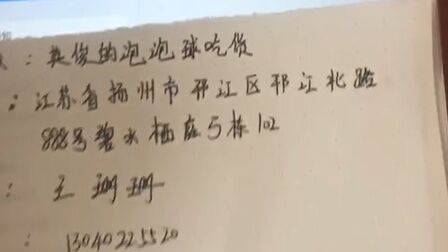 ：英俊的泡泡球吃货
：江苏省扬州市邗江区邗江北路
888号碧水栖庭5栋102
：王珊珊
：13040225520